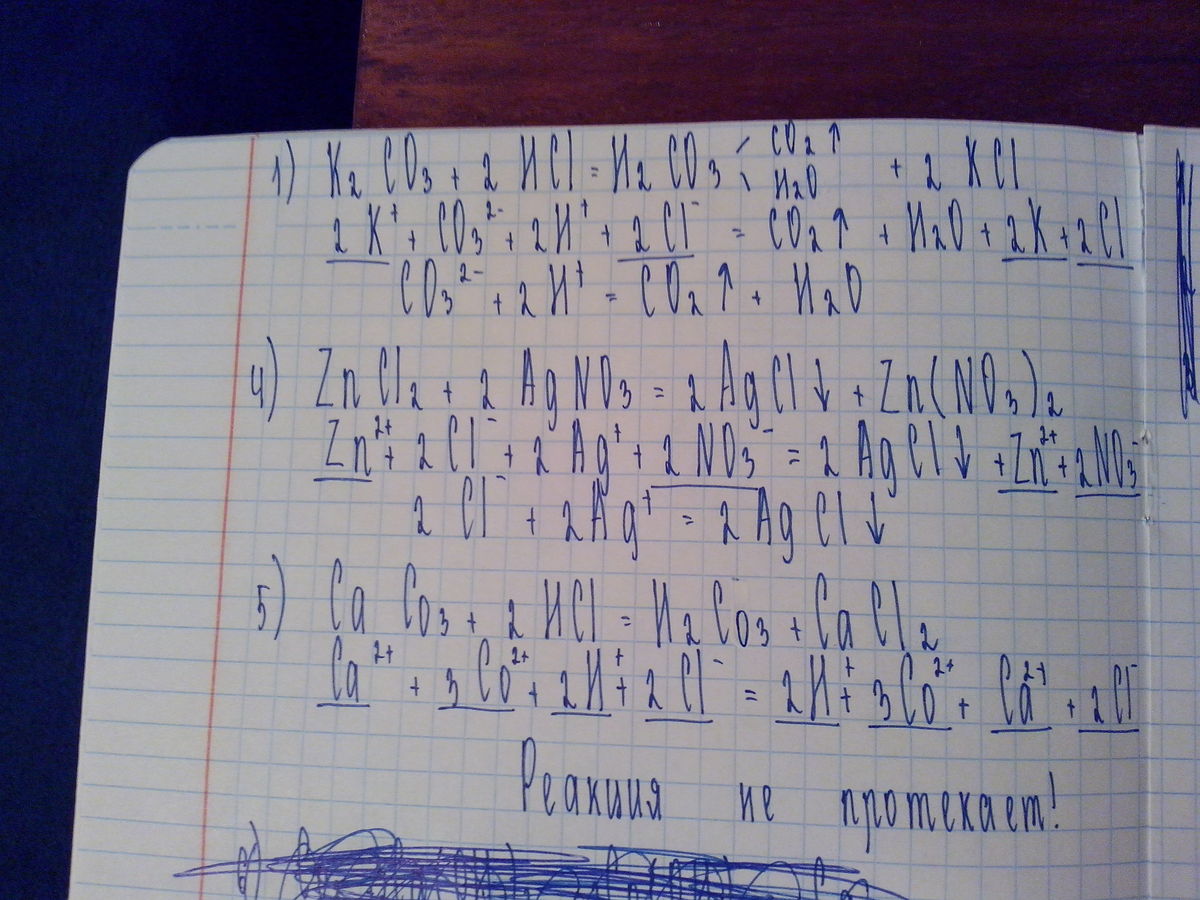 1) K₂CO₃ + 2HCl = H₂CO₃ < CO₂↑ H₂O + 2KCl
2K⁺ + CO₃²⁻ + 2H⁺ + 2Cl⁻ = CO₂↑ + H₂O + 2K + 2Cl
CO₃²⁻ + 2H⁺ = CO₂↑ + H₂O
4) ZnCl₂ + 2AgNO₃ = 2AgCl↓ + Zn(NO₃)₂
Zn²⁺ + 2Cl⁻ + 2Ag⁺ + 2NO₃⁻ = 2AgCl↓ + Zn²⁺ + 2NO₃⁻
2Cl⁻ + 2Ag⁺ = 2AgCl↓
5) CaCo₃ + 2HCl = H₂Co₃ + CaCl₂
Ca²⁺ + 3Co²⁺ + 2H⁺ + 2Cl⁻ = 2H⁺ + 3Co²⁺ + Ca²⁺ + 2Cl⁻
Реакция не протекает!